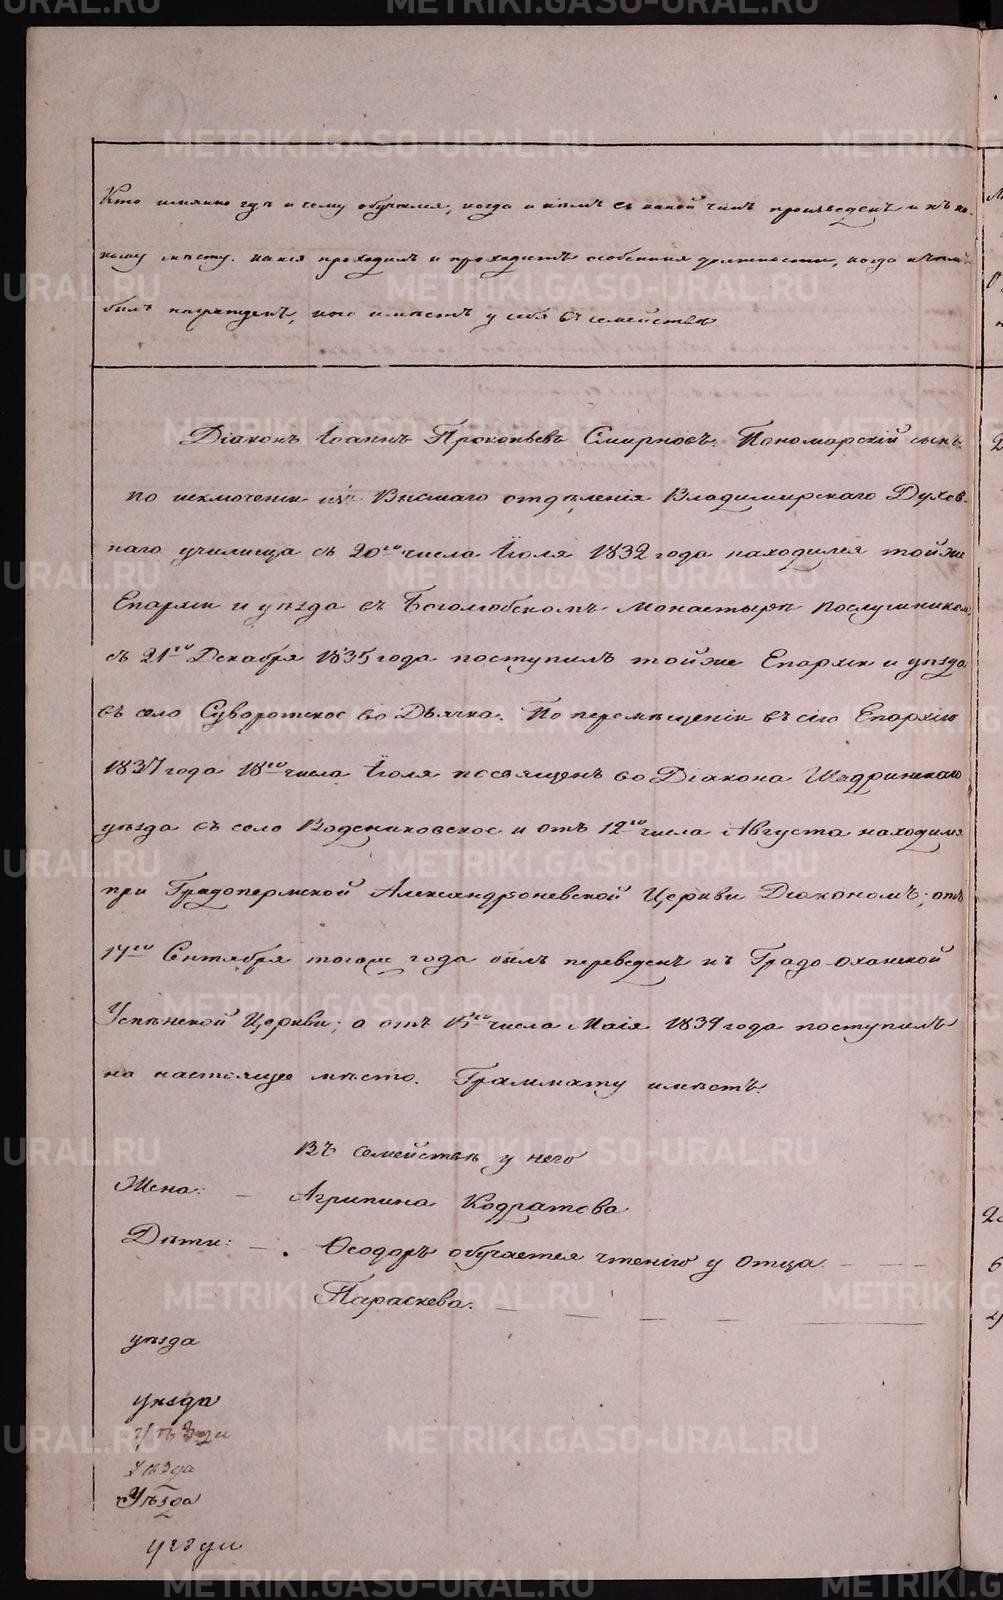 Кто имянно гдѣ и чему обучался, когда и кѣмъ въ какой чинъ произведенъ и къ ка-
кому мѣсту. какія проходилъ и проходитъ особенныя должности, когда и чѣмъ
былъ награжденъ, кого имѣетъ у себя въ семействѣ
Діаконъ Іоаннъ Прокопьевъ Смирновъ. Пономарскій сынъ.
по исключеніи изъ Высшаго отдѣленія Владимирскаго Духов-
наго училища съ 20го числа Іюля 1832 года находился тойже
Епархіи и уѣзда въ Боголюбскомъ монастырѣ послушникомъ,
съ 21го Декабря 1835 года поступилъ тойже Епархіи и уѣзда
въ село Суворотское во Дьячка. По перемѣщеніи въ сію Епархію
1837 года 18го числа Іюля посвященъ во Діакона Шадринскаго
уѣзда въ село Водениковское и отъ 12го числа Августа находился
при Градопермской Александроневской Церкви Діакономъ; отъ
17го Сентября тогоже года былъ переведенъ къ Градо-оханской
Успѣнской Церкви; а отъ 15го числа Маія 1839 года поступилъ
на настоящее мѣсто. Граммату имѣетъ.
Въ семействѣ у него
Жена: — Агрипина Кодратова
Дѣти: — Ѳеодоръ обучается чтенію у отца.
Параскева.
уѣзда
уѣзда
уѣзда
Уѣзда
METRIKI.GASO-URAL.RU